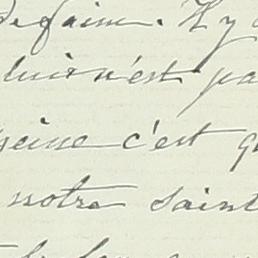 de faim. Il y
n'est pa
peine c'est q
notre saint